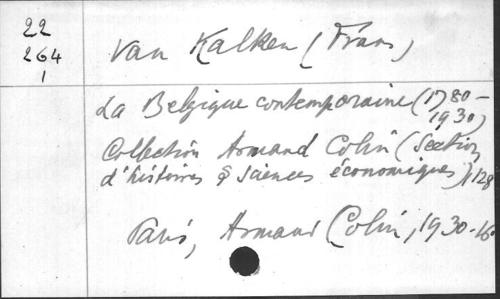 22
264
1
Van Kalken (Frans)
La Belgique contemporaine (1780-
1930)
Collection Armand Colin (Section
d'histoires & sciences économiques) 128
Paris, Armand Colin, 1930-16°